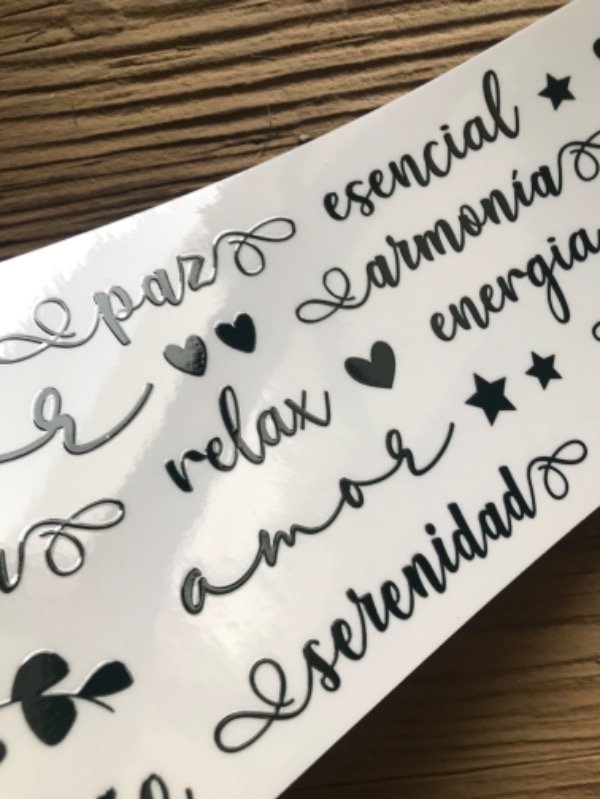 esencial
paz
armonía
energia
relax
amor
serenidad